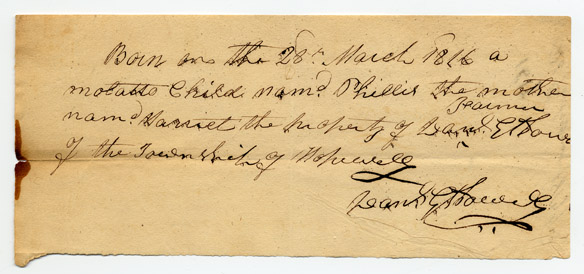 Born on the 28th March 1816 a
molatto Child namd Phillis the mother
Farmer
namd Harriet the property of Danl. G Howe
of the Township of Hopewell
Danl G Howell